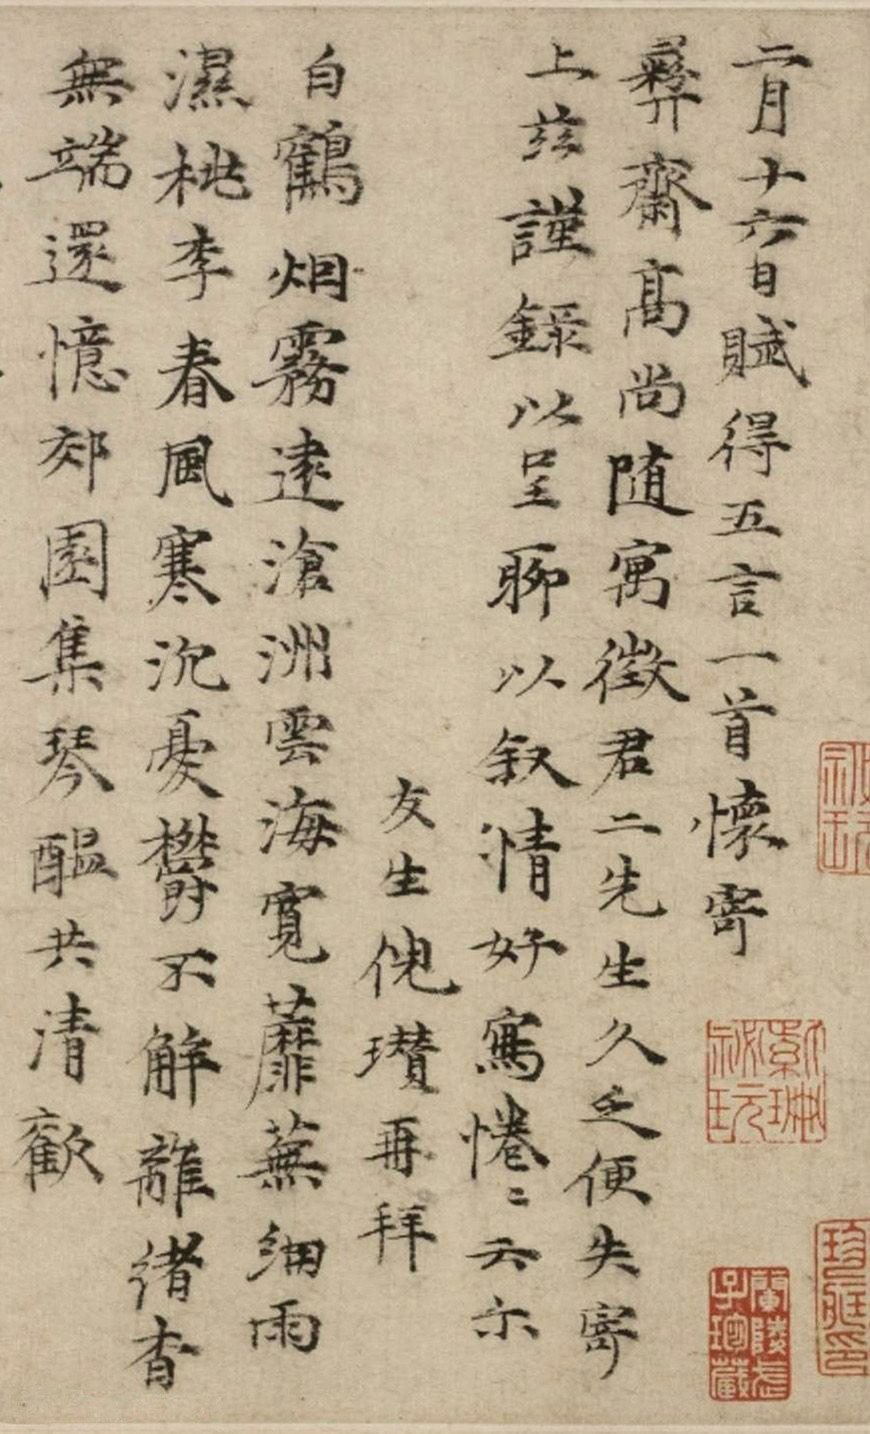 二月十六日賦得五言一首懷寄
彝齋高尚随寓徵君二先生久乏便失寄
上茲謹錄以呈聊以叙情好寫惓〻云尒
友生倪瓚再拜
白鶴烟霧逺滄洲雲海寬蘼蕪細雨
濕桃李春風寒沉憂鬱不解離緒杳
無端還憶郊園集琴醞共清歡